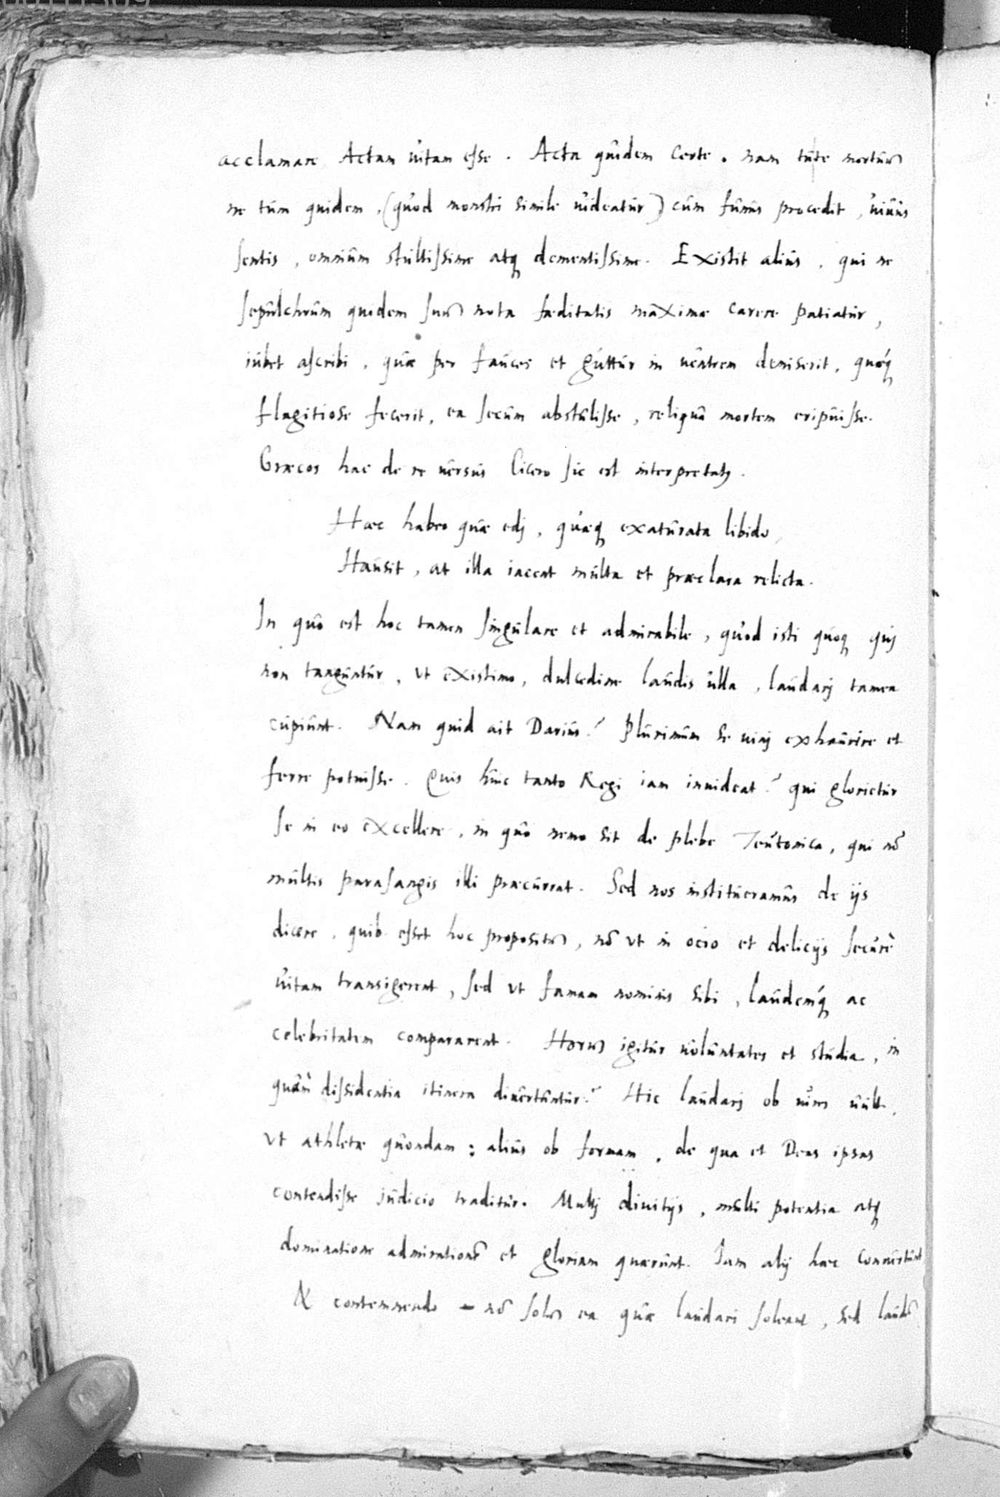 acclamare Actam vitam esse. Acta quidem certe. nam tute mortuus
ne tum quidem, (quod monstri simile videatur) cum funus procedit, vivus
sentis, omnium stultissime atq dementissime. Existit alius, qui ne
sepulchrum quidem suum nota fæditatis maxima carere patiatur,
iubet ascribi, quæ per fauces et guttur in ventrem demiserit, quæq
flagitiose fecerit, ea secum abstulisse, reliqua mortem eripuisse.
Græcos hac de re versus Cicero sic est interpretatus.
Hæc habeo quæ edi, quæq exaturata libido
Hausit, at illa iacent multa et præclara relicta.
In quo est hoc tamen singulare et admirabile, quod isti quoq qui
non tanguntur, ut existimo, dulcedine laudis ulla, laudari tamen
cupiunt. Nam quid ait Darius? Plurimum se vini exhaurire et
ferre potuisse. Quis huic tanto Regi iam invideat? qui glorietur
se in eo excellere, in quo nemo sit de plebe Teutonica, qui nō
multis parasangis illi præcurrat. Sed nos institueramus de ijs
dicere, quib esset hoc propositum, nō ut in ocio et delicijs secure
vitam transigerent, sed ut famam nominis sibi, laudemq ac
celebritatem compararent. Horum igitur voluntates et studia, in
quàm dissidentia itinera divertuntur? Hic laudari ob vires vult,
ut athletæ quondam: alius ob formam, de qua et Deas ipsas
contendisse iudicio traditur. Multi divitijs, multi potentia atq
dominatione admirationē et gloriam quærunt. Iam alij hæc
& contemnendo nō solum ea quæ laudari solent, sed laudē